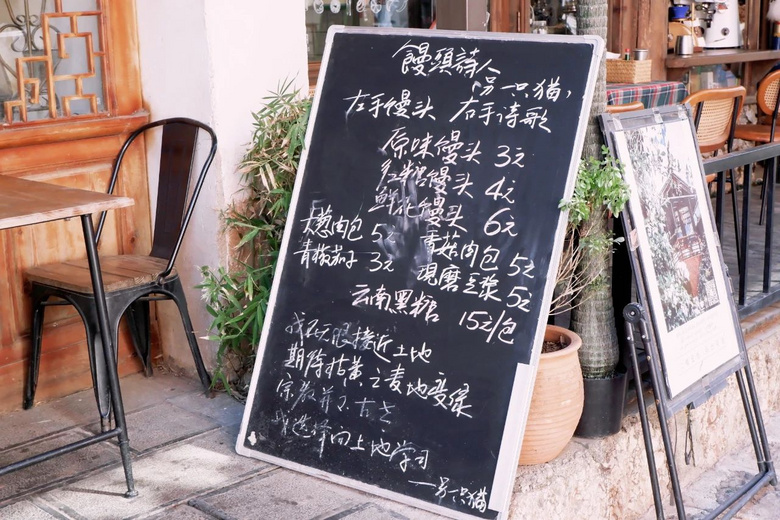 饅頭詩人
另一只猫,
左手馒头 右手诗歌
原味馒头 3元
红糖馒头 4元
鲜花馒头 6元
大葱肉包 5 香菇肉包 5元
青椒茄子 3元 現磨豆浆 5元
云南黑糖 15元/包
无限接近土地
期待枯黄之麦地变绿
宗教并不古老
我选择向土地学习
—另一只猫